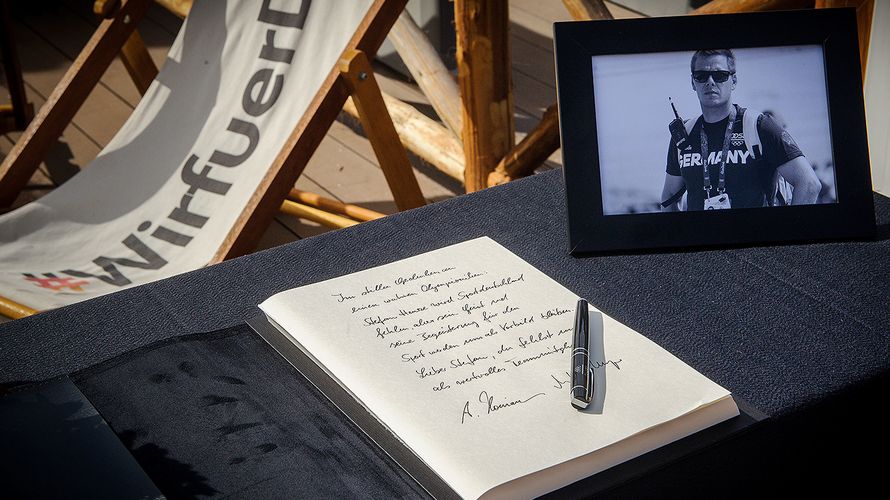 #WirfuerD
GERMANY
Im stillen Gedenken an
einen wahren Olympioniken.
Stefan Henze wird Sportdeutschland
fehlen, aber sein Geist und
seine Begeisterung für den
Sport werden uns als Vorbild bleiben.
Lieber Stefan, du fehlst uns
als wertvolles Teammitglied
A. Hörmann